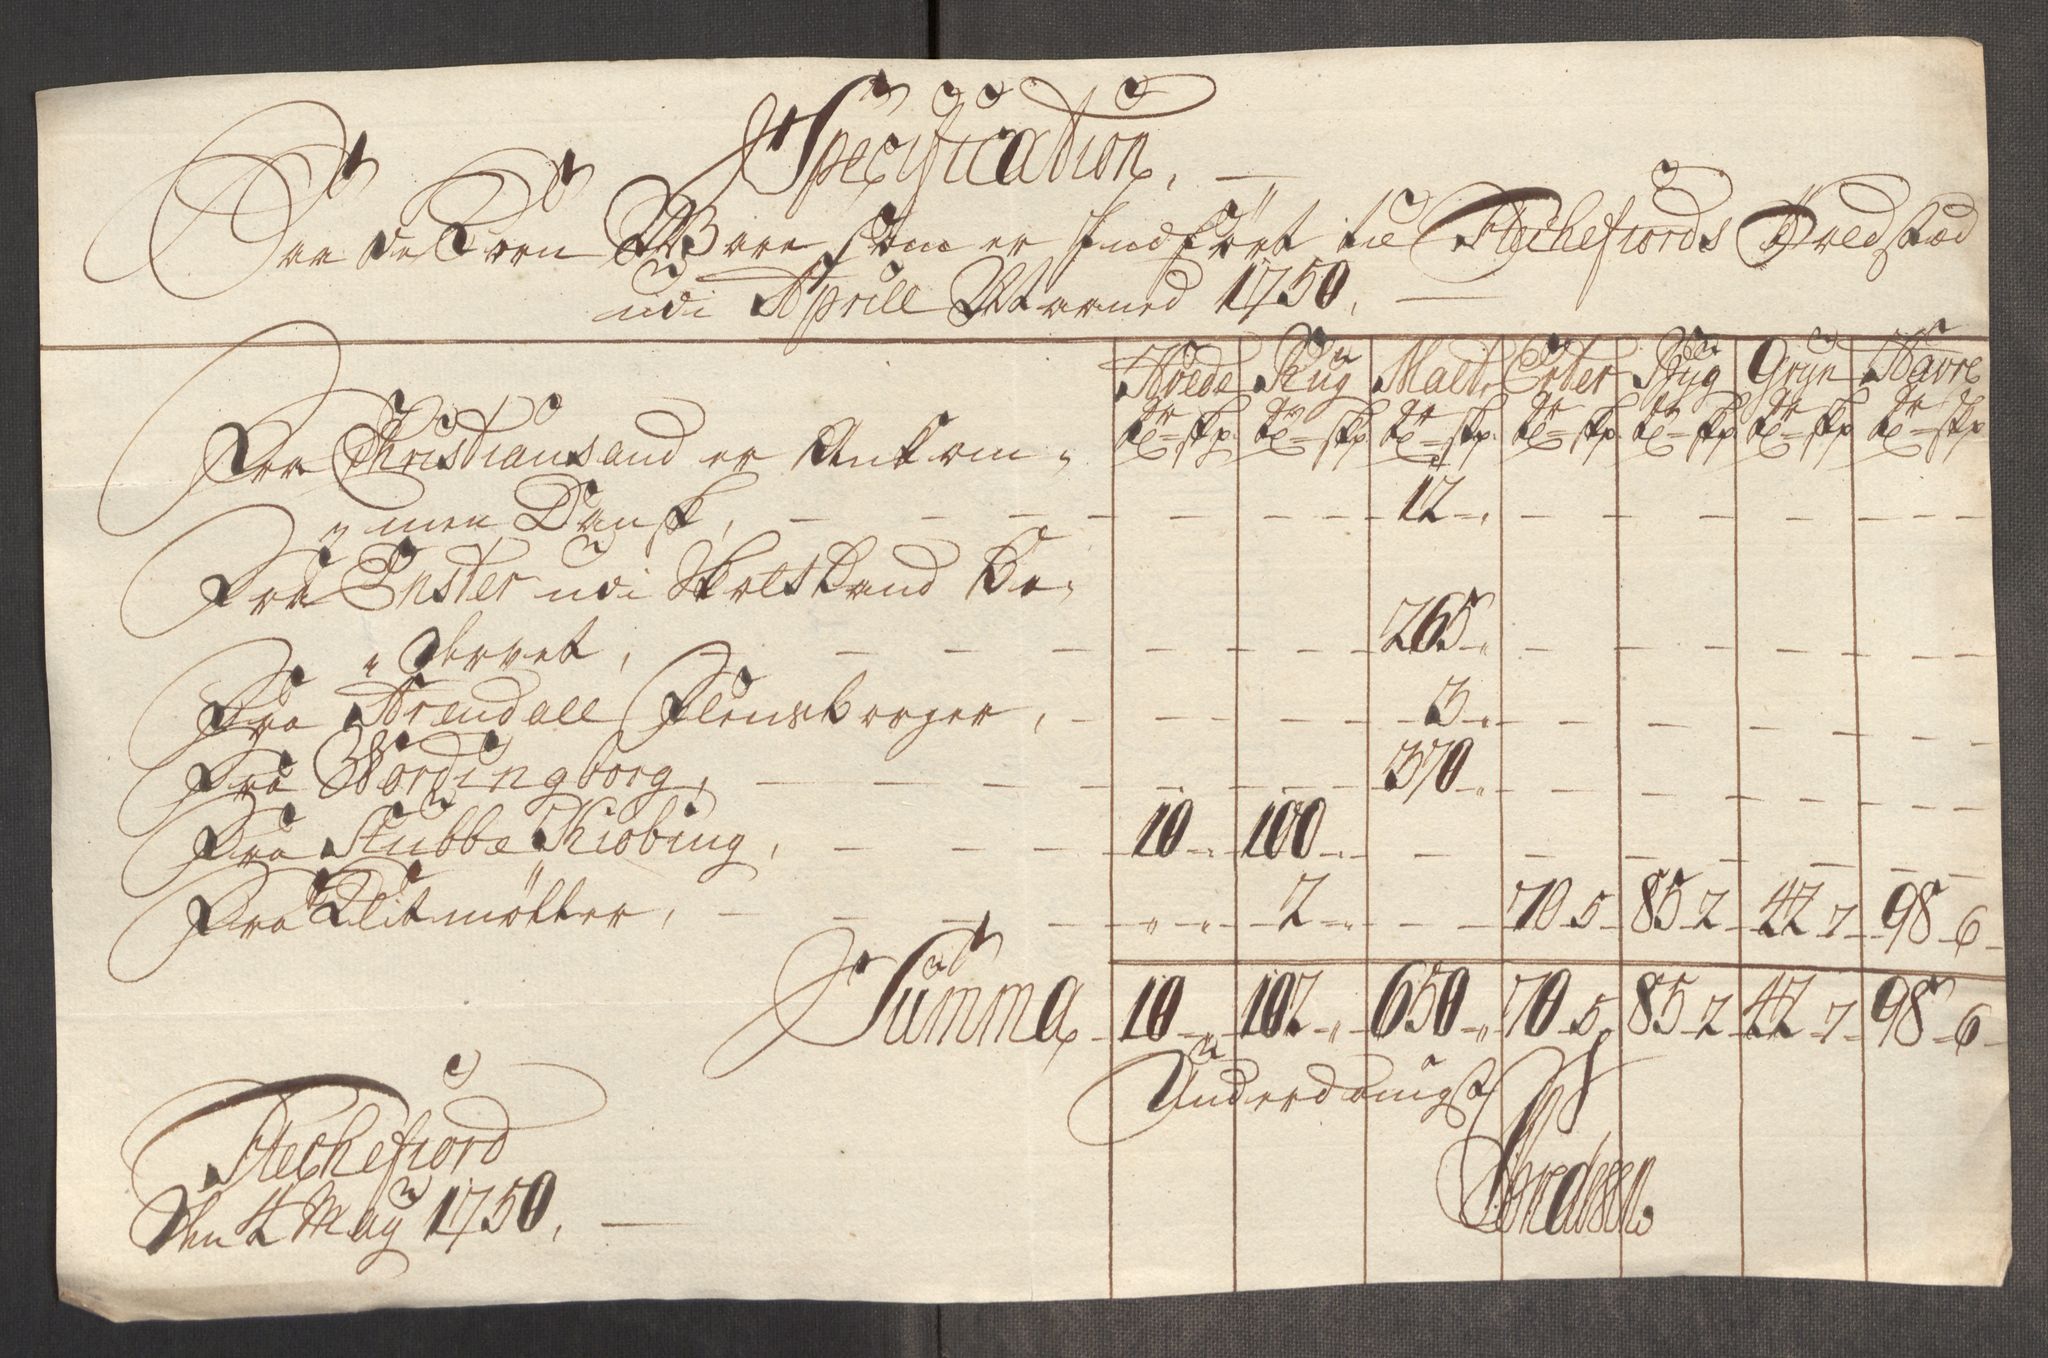 Specification,
Paa de Korn Ware som er Indført til Fleckefiords Toldstæd
udi Aprill Maaned 1750.
Hvede Rug Malt Erter Byg Gryn Havre
tr skp. tr skp tr skp. tr skp tr skp tr skp tr skp
Fra Christiansand er Ankom-
men Dansk, 12
Fra Enster udi Holsteand
265
Fra Arendall Flensborger, 3
Fra Wordingborg, 370
Fra Stubbe Kiobing, 10 100
Fra Klitmøller, 2 70 5 85 2 42 7 98 6
Summa 10 102 650 70 5 85 2 42 7 98 6
Underdanigst
Fleckefiord
den 4 May 1750.